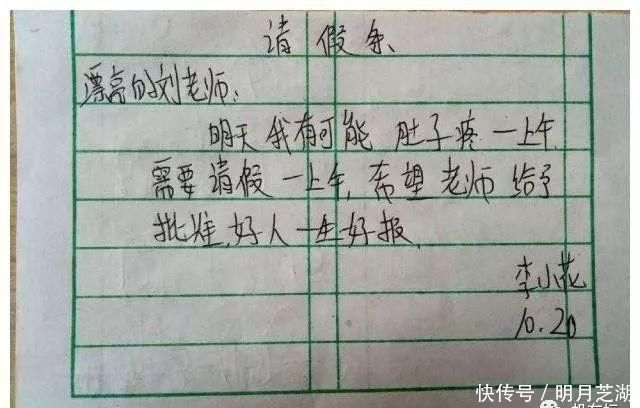 请假条
漂亮的刘老师:
明天我有可能肚子疼一上午
需要请假一上午,希望老师给予
批准,好人一生好报,
李小花
10.20
快传号/明月芝湖